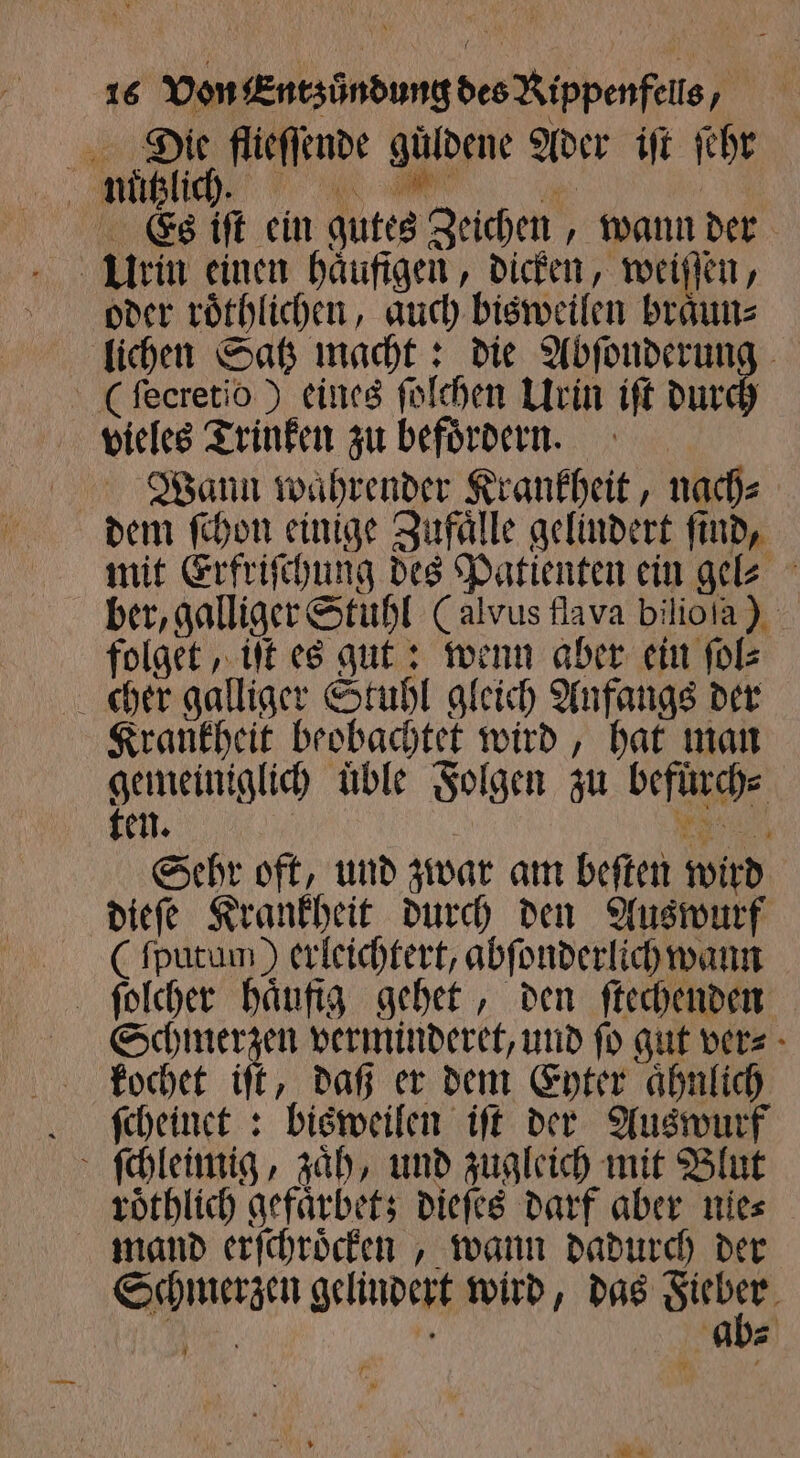 16 Von Entzuͤndung des Rippenfells,
Die flieſſende guͤldene Ader iſt ſehr
nuͤtzlich.
Es iſt ein gutes Zeichen, wann der
Urin einen haͤufigen, dicken, weiſſen,
oder roͤthlichen, auch bisweilen braͤun⸗
lichen Satz macht: die Abſonderung
(ſecretio) eines ſolchen Urin iſt durch
vieles Trinken zu befoͤrdern.
Wann waͤhrender Krankheit, nach⸗
dem ſchon einige Zufaͤlle gelindert ſind,
mit Erfriſchung des Patienten ein gel⸗
ber, galliger Stuhl (alvus flava bilioſa)
folget, iſt es gut: wenn aber ein ſol⸗
cher galliger Stuhl gleich Anfangs der
Krankheit beobachtet wird, hat man
gemeiniglich uͤble Folgen zu befuͤrch⸗
ten.
Sehr oft, und zwar am beſten wird
dieſe Krankheit durch den Auswurf
(ſputum) erleichtert, abſonderlich wann
ſolcher haͤufig gehet, den ſtechenden
Schmerzen verminderet, und ſo gut ver⸗
kochet iſt, daß er dem Eyter aͤhnlich
ſcheinet: bisweilen iſt der Auswurf
ſchleimig, zaͤh, und zugleich mit Blut
roͤthlich gefaͤrbet; dieſes darf aber nie⸗
mand erſchroͤcken, wann dadurch der
Schmerzen gelindert wird, das Fieber
ab⸗